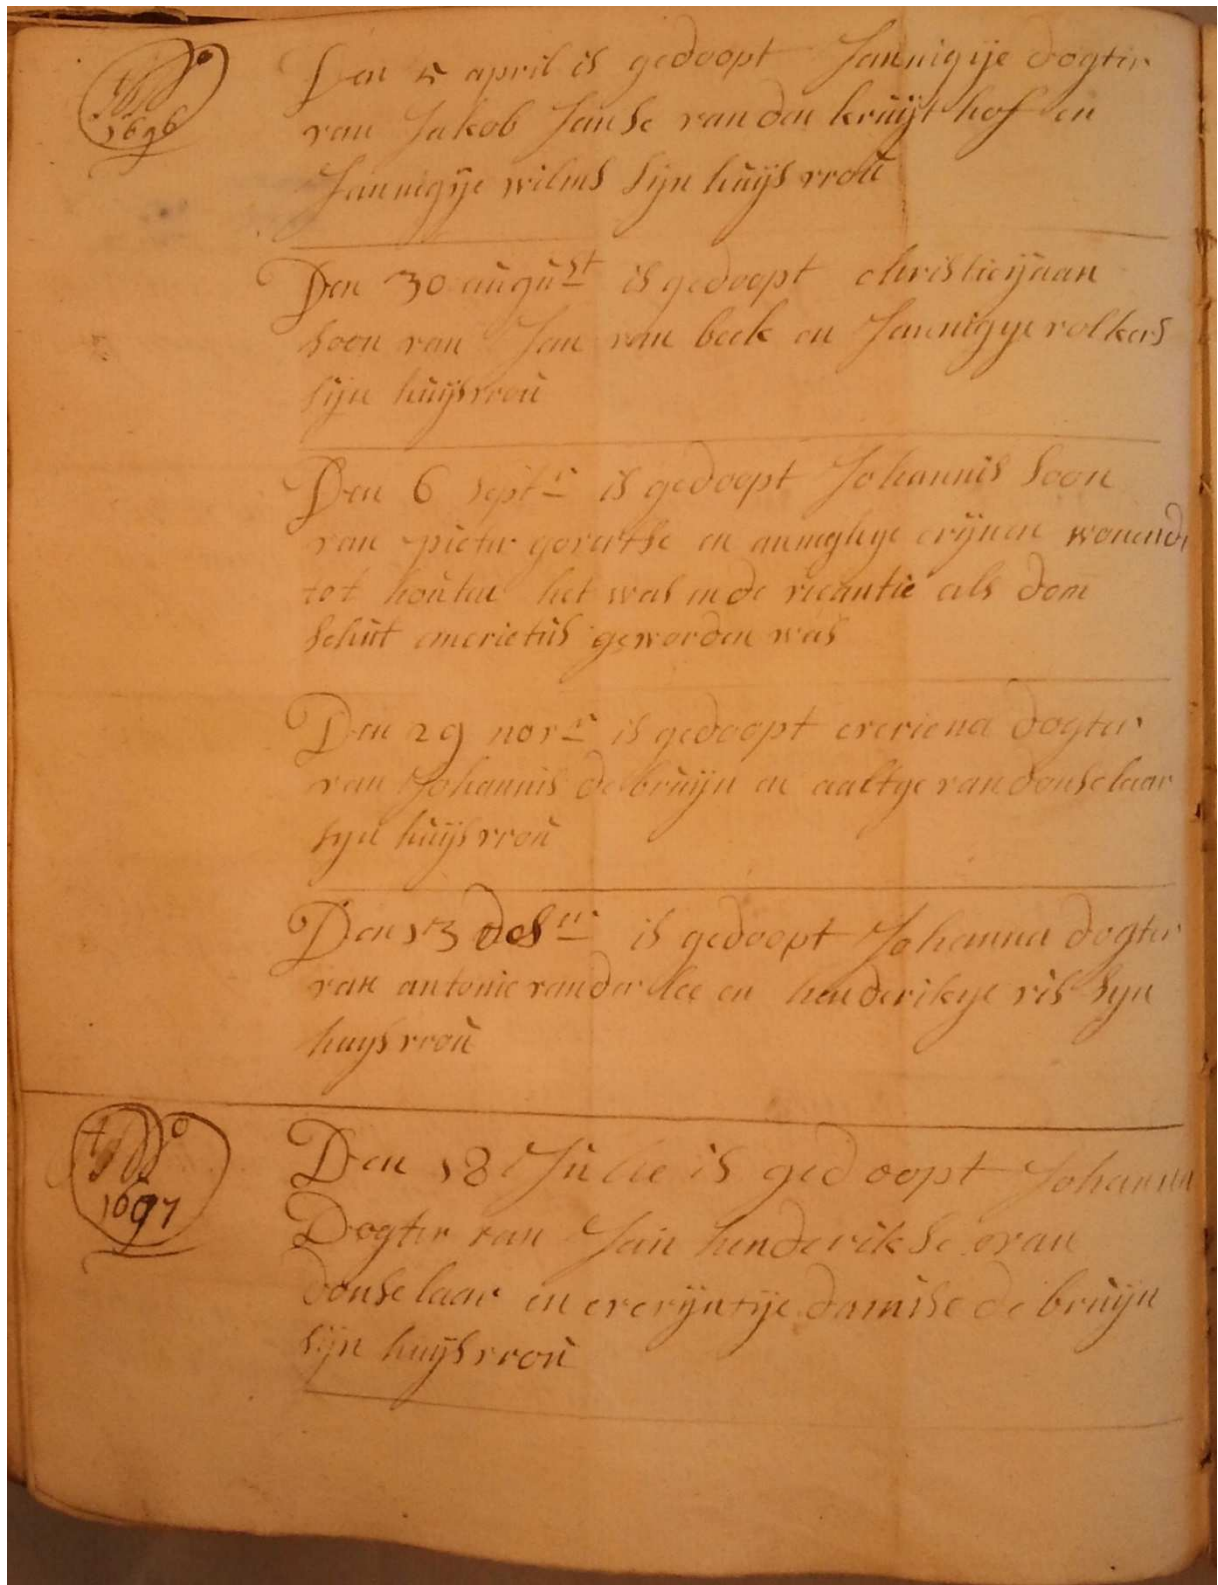 Ao
1696
Den 5 april is gedoopt Jannigije dogter
van Jakob Janse van den kruijt hof en
Jannigije wilms sijn huijs vrou
Den 30 august is gedoopt christieijaan
soon van Jan van beek en Jannigye volkers
sijn huijsvrou
Den 6 septr is gedoopt Johannis soon
van pieter govertse en wonende
tot houten het was in de vicantie als dom
Schut emerietus geworden was
Den 29 novr is gedoopt everiena dogter
van Johannis de bruijn en aaltge van donselaar
syn huijsvrou
Den 13 desr is gedoopt Johanna dogter
van antonie van der lee en henderikye ris syn
huysvrou
Ao
1697
Den 18 Julie is gedoopt Johanna
Dogter van Jan henderikse van
donselaar en everijntije damise de bruijn
sijn huijsvrou